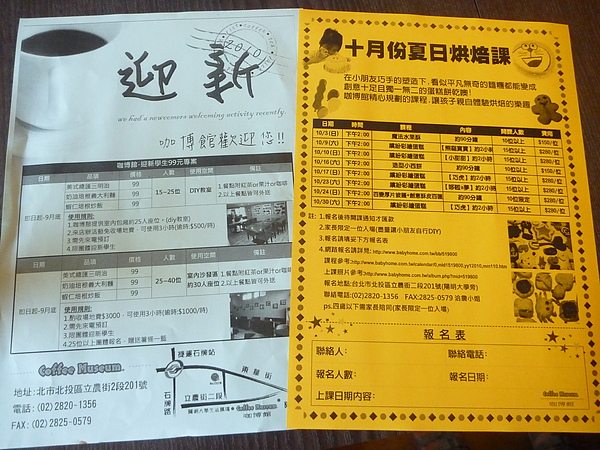 迎新
2010
we had a newcomers welcoming activity recently.
咖博館歡迎您!!
咖博館-迎新學生99元專案
日期 品項 價格 人數 使用空間 備註
美式總匯三明治 99
奶油培根義大利麵 99
蝦仁培根炒飯 99
15~25位 DIY教室
1.餐點附紅茶or果汁or咖啡
2.以上餐點皆可外送
即日起-9月底
使用規則:
1.咖博館提供室內包廂約25人座位。(diy教室)
2.來店辦活動免收場地費,可使用3小時(逾時:$500/時)
3.需先來電預訂
4.限團體迎新學生
日期 品項 價格 人數 使用空間 備註
美式總匯三明治 99
奶油培根義大利麵 99
蝦仁培根炒飯 99
25~40位
室內沙發區
約30人座位
1.餐點附紅茶or果汁or咖啡
2.以上餐點皆可外送
即日起-9月底
使用規則:
1.酌收場地費$3000,可使用3小時(逾時:$1000/時)
2.需先來電預訂
3.限團體迎新學生
4.25位以上團體報名,贈送薯條一籃
Coffee Museum
地址:北市北投區立農街2段201號
電話:(02)2820-1356
FAX:(02)2825-0579
捷運石牌站
東華街
石牌路
立農街二段
Coffee Museum
十月份夏日烘焙課
在小朋友巧手的塑造下,看似平凡無奇的麵糰都能變成
創意十足且獨一無二的蛋糕餅乾噢!
咖博館精心規劃的課程,讓孩子親自體驗烘焙的樂趣
日期 時間 課程 內容 開課人數 費用
10/3(日) 下午2:00 魔法水果酥 約90分鐘 10位以上 $150/位
10/9(六) 下午2:00 繽紛彩繪蛋糕 約2小時 15位以上 $280/位
10/10(日) 下午2:00 繽紛彩繪蛋糕 【小甜甜】約2小時 15位以上 $280/位
10/16(六) 下午2:00 造型小西餅 約90分鐘 10位以上 $150/位
10/17(日) 下午2:00 繽紛彩繪蛋糕 【巧虎】約2小時 15位以上 $280/位
10/23(六) 下午2:00 繽紛彩繪蛋糕 約2小時 15位以上 $280/位
10/24(日) 下午2:00 約90分鐘
10/30(六) 下午2:00 繽紛彩繪蛋糕 【巧虎】約2小時 15位以上 $280/位
註:1.報名後待開課通知才匯款
2.家長限定一位入場(盡量讓小朋友自行DIY)
3.報名請填妥下方報名表
4.網路報名請詳見:http://www.babyhome.com.tw/bb/519800
報名地點:台北市北投區立農街二段201號(陽明大學旁)
聯絡電話:(02)2820-1356 FAX:2825-0579 洽詹小姐
ps.四歲以下需家長陪同(家長限定一位入場)
報名表
聯絡人: 聯絡電話:
報名人數: 報名日期:
上課日期內容:
Coffee Museum